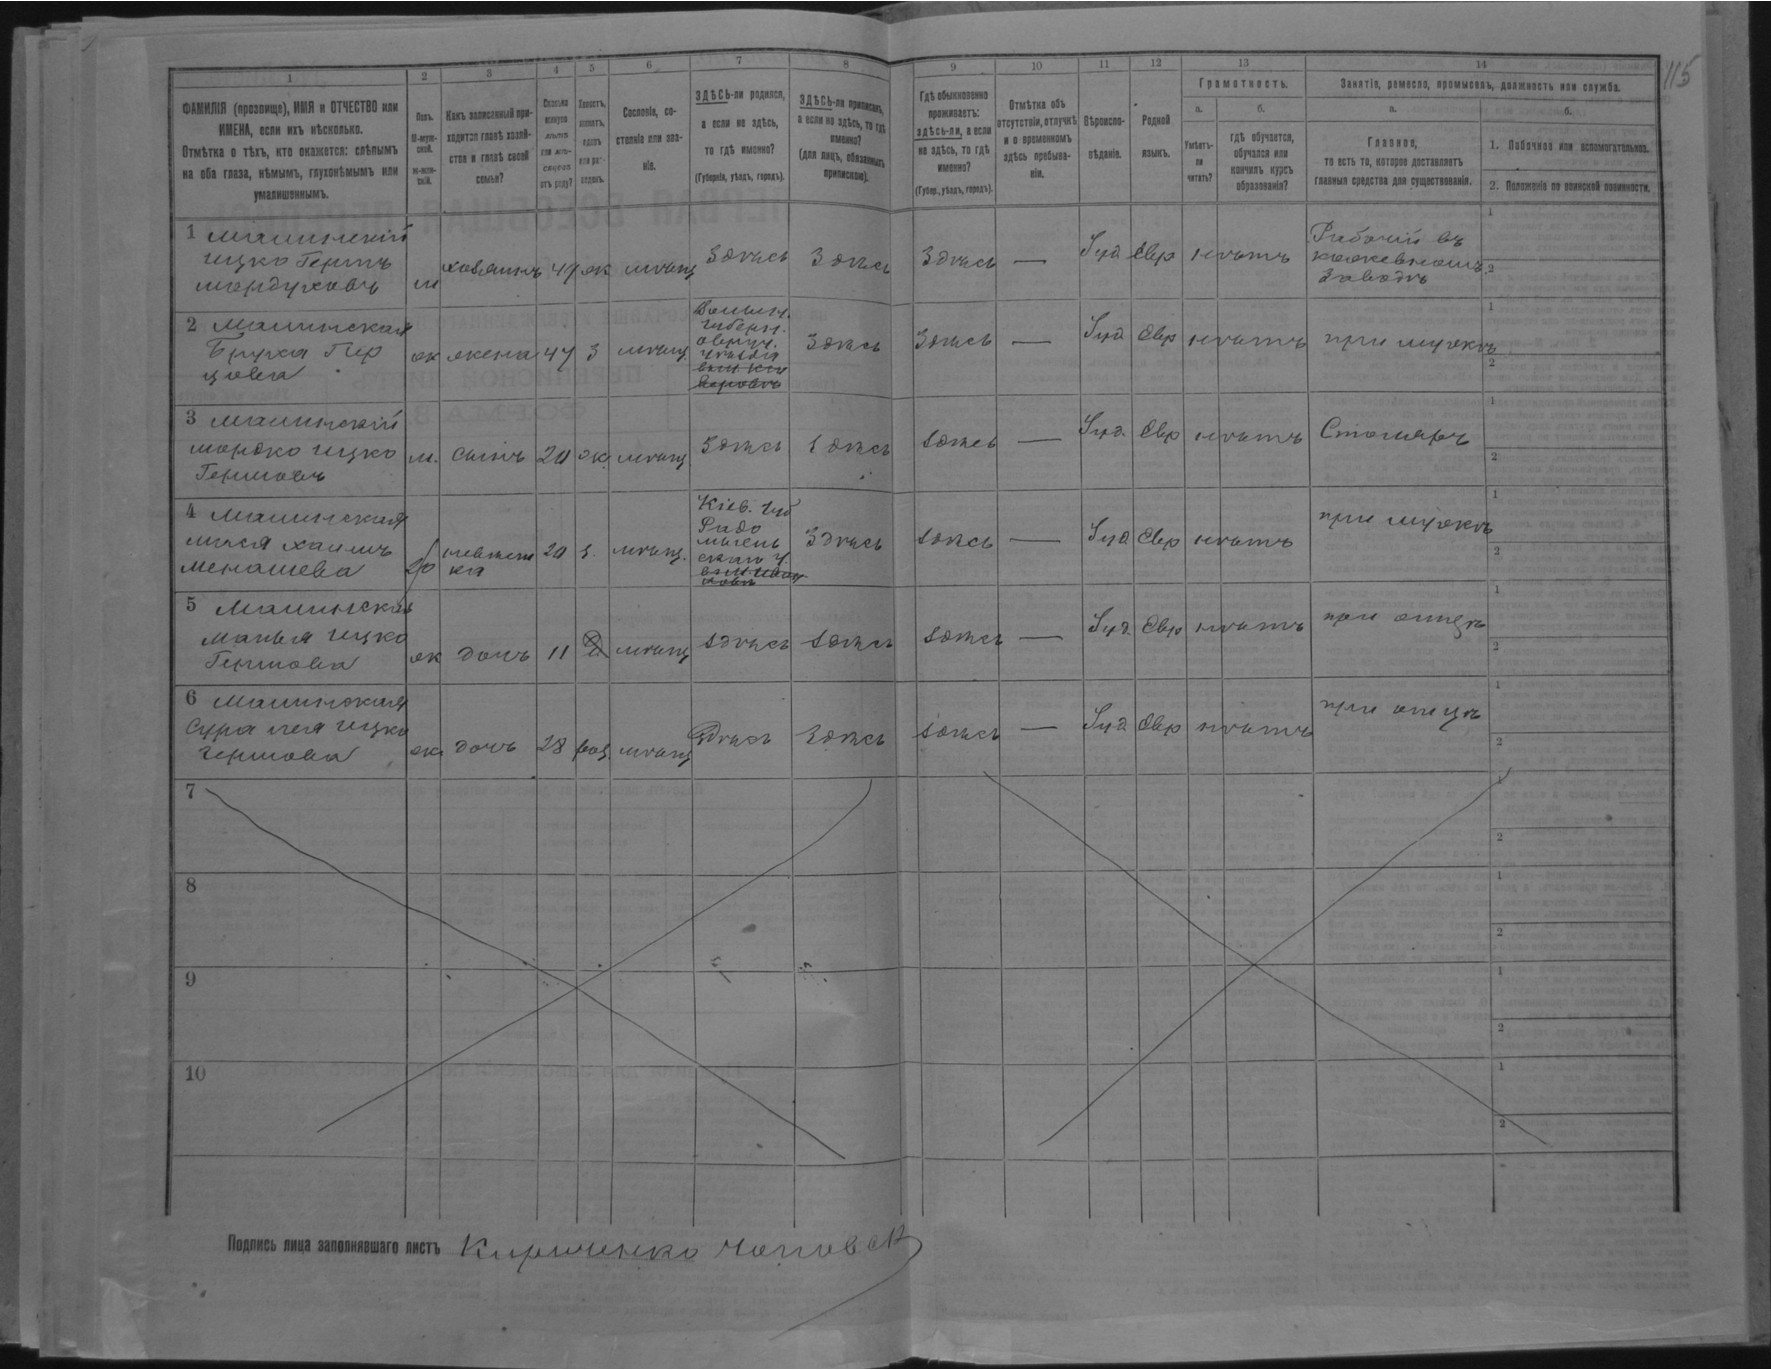 115
1 2 3 4 5 6 7 8 9 10 11 12 13 14
ФАМИЛІЯ (прозвище), ИМЯ и ОТЧЕСТВО или
ИМЕНА, если ихъ нѣсколько.
Отмѣтка о тѣхъ, кто окажется: слѣпымъ
на оба глаза, нѣмымъ, глухонѣмымъ или
умалишеннымъ.
Полъ.
Какъ записанный при-
ходится главѣ хозяй-
ства и главѣ своей
семьи?
Сколько
минуло
лѣтъ
или мѣ-
сяцевъ
отъ роду?
Холостъ,
женатъ,
вдовъ
или раз-
веденъ.
Сословіе, со-
стояніе или зва-
ніе.
ЗДѢСЬ-ли родился,
а если не здѣсь,
то гдѣ именно?
(Губернія, уѣздъ, городъ).
ЗДѢСЬ-ли приписанъ,
а если не здѣсь, то гдѣ
именно?
(для лицъ, обязанныхъ
припискою).
Гдѣ обыкновенно
проживаетъ:
здѣсь-ли, а если
не здѣсь, то гдѣ
именно?
(Губер., уѣздъ, городъ).
Отмѣтка объ
отсутствіи, отлучкѣ
и о временномъ
здѣсь пребыва-
ніи.
Вѣроиспо-
вѣданіе.
Родной
языкъ.
Грамотность.
а.
Умѣетъ-
ли
читать?
б.
гдѣ обучается,
обучался или
кончилъ курсъ
образованія?
Занятіе, ремесло, промыселъ, должность или служба.
а.
Главное,
то есть то, которое доставляетъ
главныя средства для существованія.
б.
1. Побочное или вспомогательное.
2. Положеніе по воинской повинности.
1 Малинскій
Ицко Гершъ
Мордуховъ
м хозяинъ 49 ж мѣщ Здѣсь Здѣсь Здѣсь — Іуд Евр нѣтъ
Рабочій въ
кожевномъ
заводѣ
2 Малинская
Бруха Гер
цовна
ж жена 47 З мѣщ
Волын.
Губерн.
Овруч.
уѣзда
Здѣсь Здѣсь — Іуд Евр нѣтъ при мужѣ
3 Малинскій
Мордко Ицко
Гершовъ
м. сынъ 20 ж. мѣщ Здѣсь Здѣсь Здѣсь — Іуд. Евр нѣтъ Столяръ
4 Малинская
Хаимъ
Менашева
невѣст
ка
20 З. мѣщ.
Кіев. Губ
Радо
мысль
скаго у.
Здѣсь Здѣсь — Іуд Евр нѣтъ при мужѣ
5 Малинская
Манья Ицко
Гершова
ж дочь 11 мѣщ Здѣсь Здѣсь Здѣсь — Іуд. Евр нѣтъ при отцѣ
6 Малинская
Сура Лея Ицко
Гершова
ж дочь 28 раз. мѣщ Здѣсь Здѣсь Здѣсь — Іуд Евр нѣтъ при отцѣ
7
8
9
10
Подпись лица заполнявшаго листъ